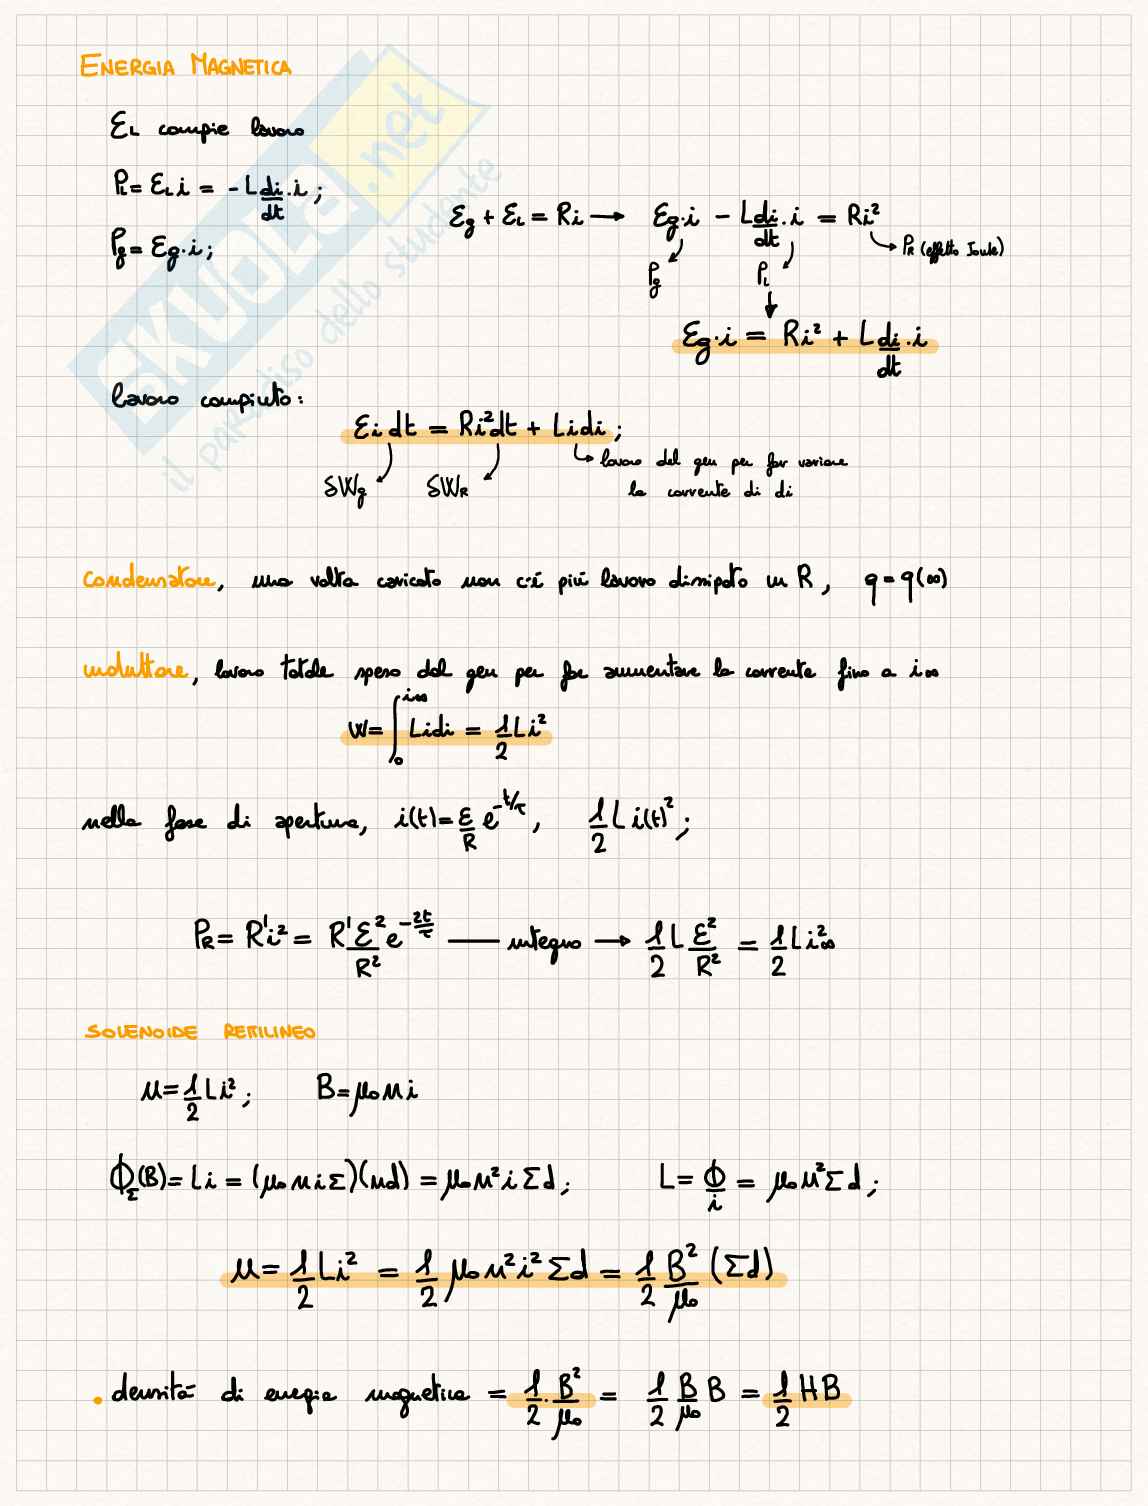 ENERGIA MAGNETICA
SKUOLA.net
il paradiso dello studente
ℰL compie lavoro
PL = ℰL i = - L di/dt · i ;
ℰg + ℰL = Ri → ℰg·i - L di/dt · i = Ri²
Pg = ℰg·i ;
PR (effetto Joule)
Pg PL
ℰg·i = Ri² + L di/dt · i
lavoro compiuto:
ℰi dt = Ri²dt + Lidi ;
lavoro del gen per far variare
δWg δWR la corrente di di
Condensatore, una volta caricato non c'è più lavoro dissipato in R, q = q(∞)
induttore, lavoro totale speso dal gen per far aumentare la corrente fino a i∞
W = ∫₀^i∞ Lidi = 1/2 Li²
nella fase di apertura, i(t) = ℰ/R e^-t/τ, 1/2 L i(t)² ;
PR = R'i² = R' ℰ²/R² e^-2t/τ — integro → 1/2 L ℰ²/R² = 1/2 Li²∞
SOLENOIDE RETTILINEO
u = 1/2 Li² ; B = μ₀ n i
ΦΣ(B) = Li = (μ₀ n i Σ)(nd) = μ₀ n² i Σ d ; L = Φ/i = μ₀ n² Σ d ;
u = 1/2 Li² = 1/2 μ₀ n² i² Σ d = 1/2 B²/μ₀ (Σd)
• densità di energia magnetica = 1/2 · B²/μ₀ = 1/2 B/μ₀ B = 1/2 HB